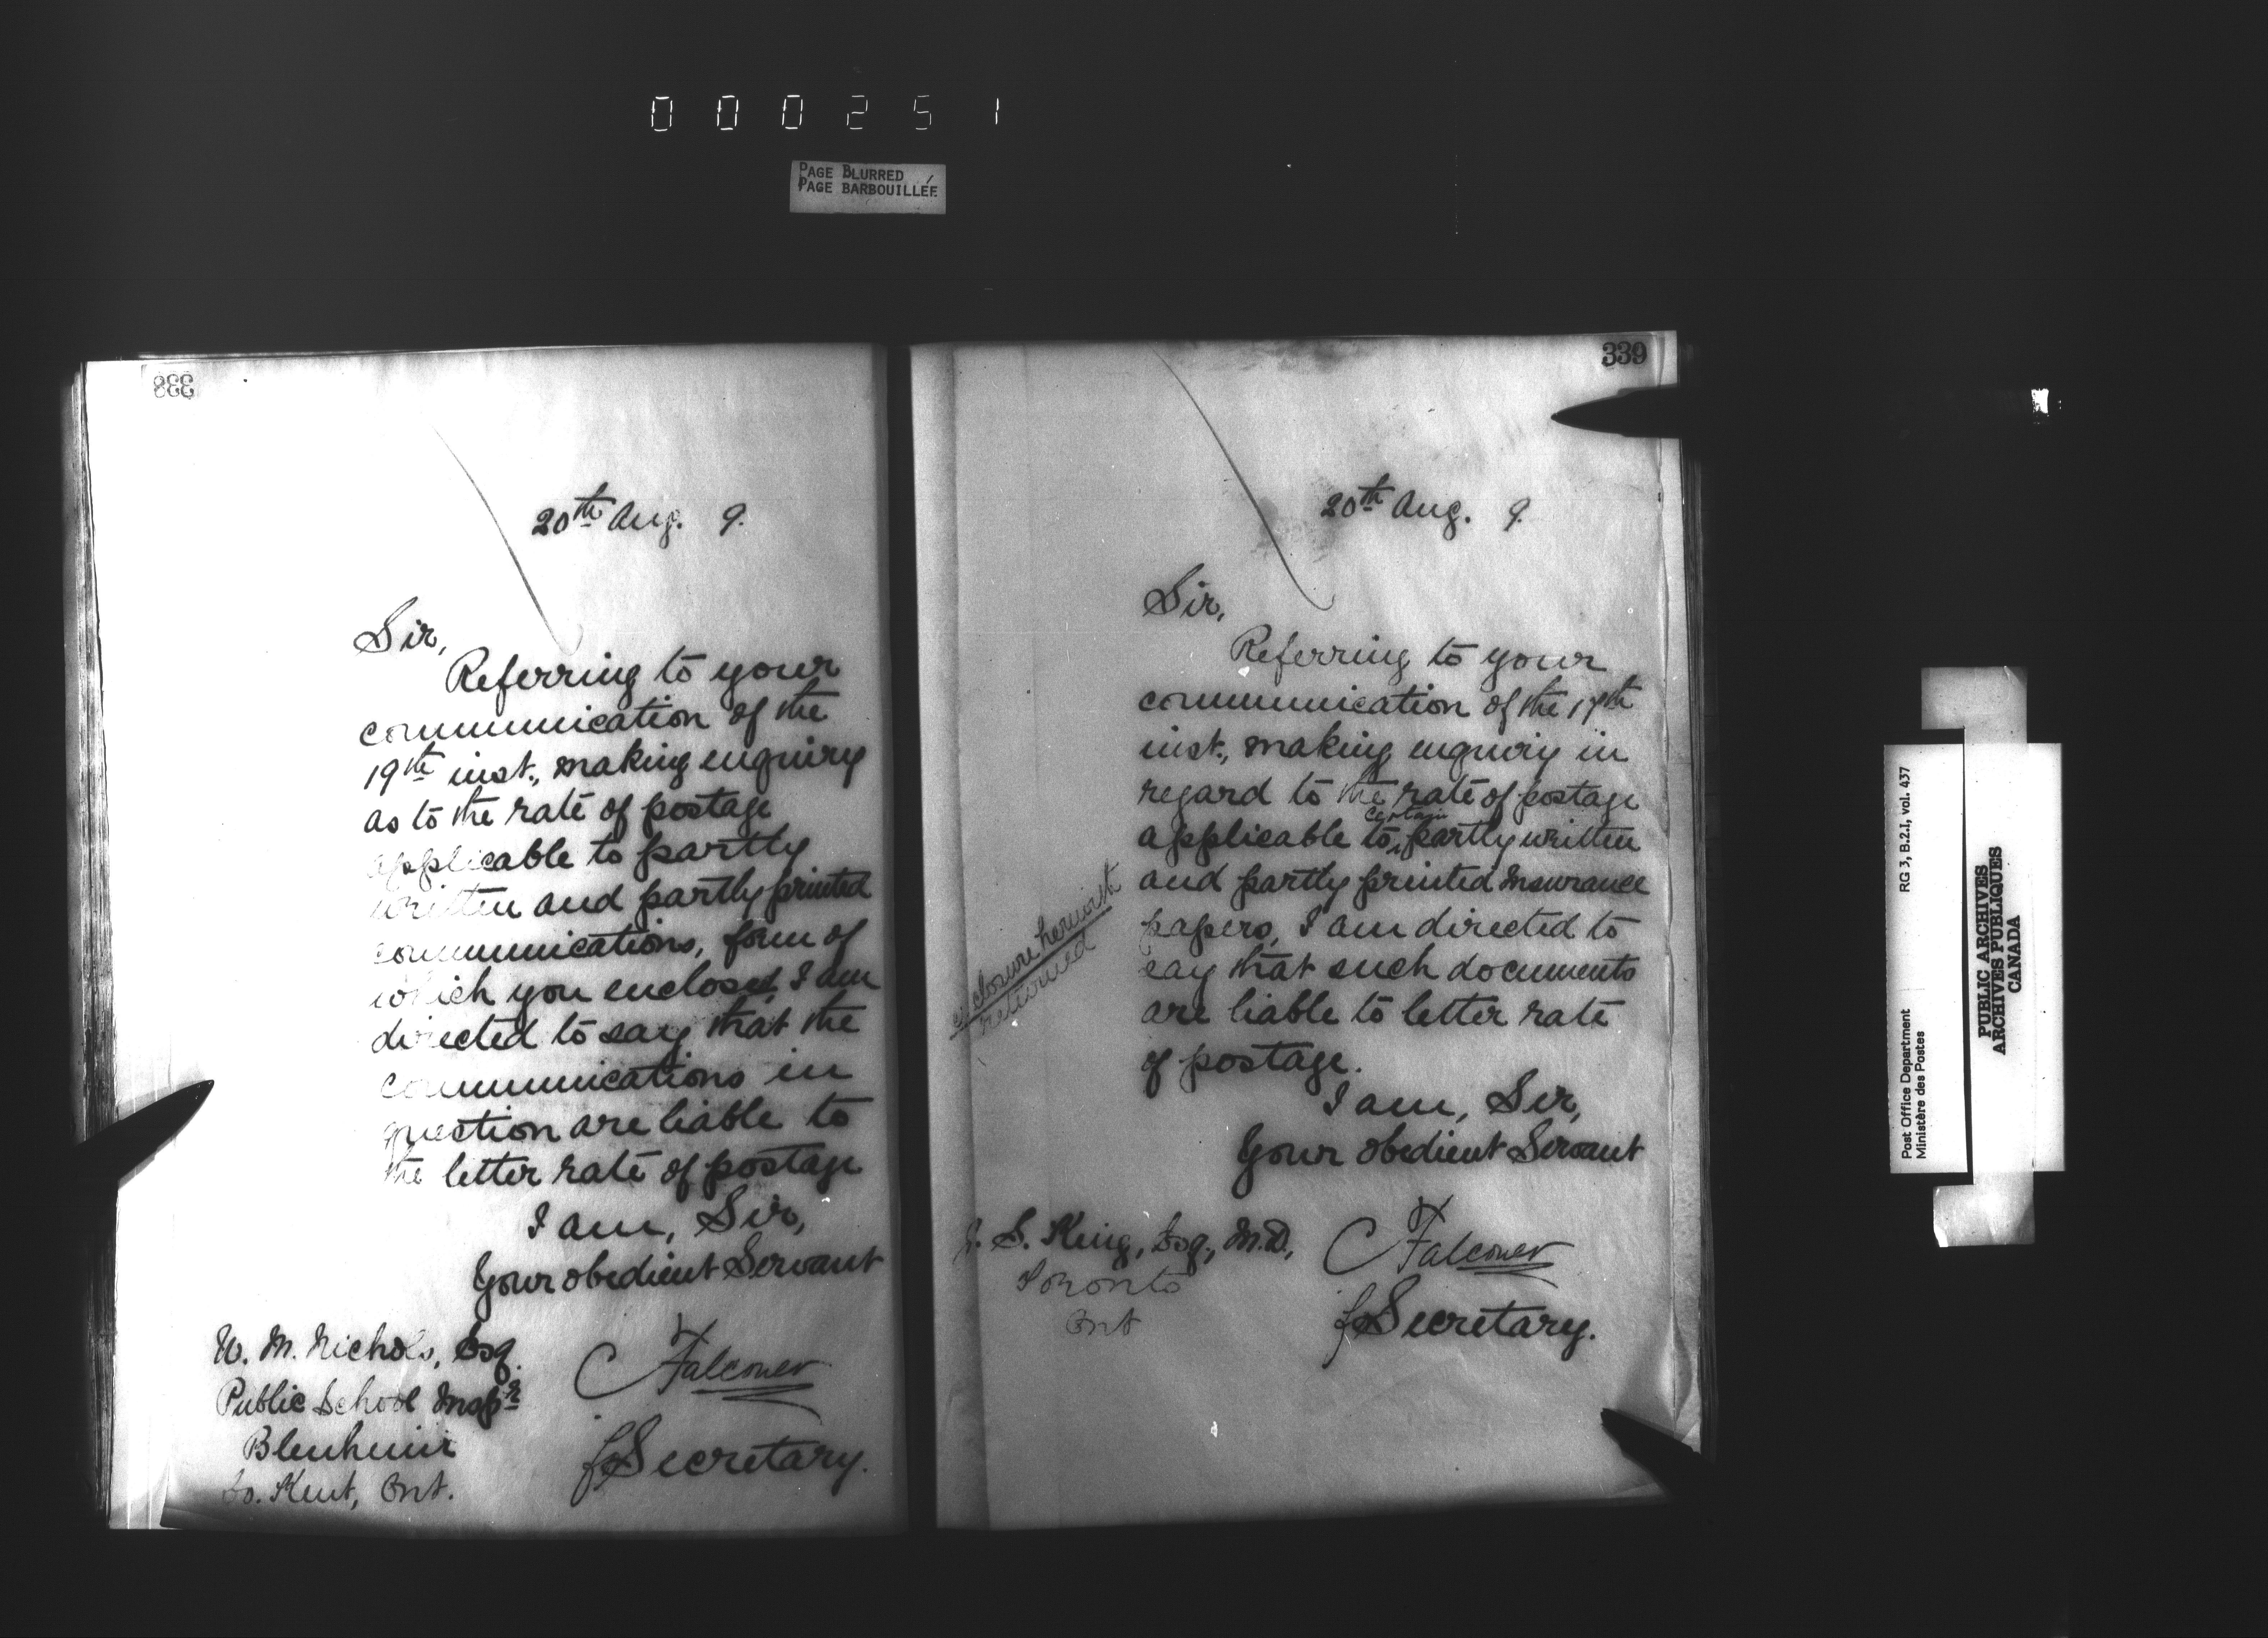 000251
PAGE BLURRED
PAGE BARBOUILLÉE
338
20th Aug. 9.
Sir,
Referring to your
communication of the
19th inst., making enquiry
as to the rate of postage
applicable to partly
written and partly printed
communications, form of
which you enclosed, I am
directed to say that the
communications in
question are liable to
the letter rate of postage
I am, Sir,
Your obedient Servant
W. M. Nichols, Esq.
Public School Inspr
Blenheim
Co. Kent, Ont.
C Falconer
for Secretary.
339
20th Aug. 9.
Sir,
Referring to your
communication of the 17th
inst., making enquiry in
regard to the rate of postage
applicable to certain partly written
and partly printed Insurance
papers, I am directed to
say that such documents
are liable to letter rate
of postage.
I am, Sir,
Your obedient Servant
enclosure herewith
returned
J. S. King, Esq., M.D.,
Toronto
Ont
C Falconer
for Secretary.
Post Office Department
Ministère des Postes
RG 3, B.2.I, vol. 437
PUBLIC ARCHIVES
ARCHIVES PUBLIQUES
CANADA